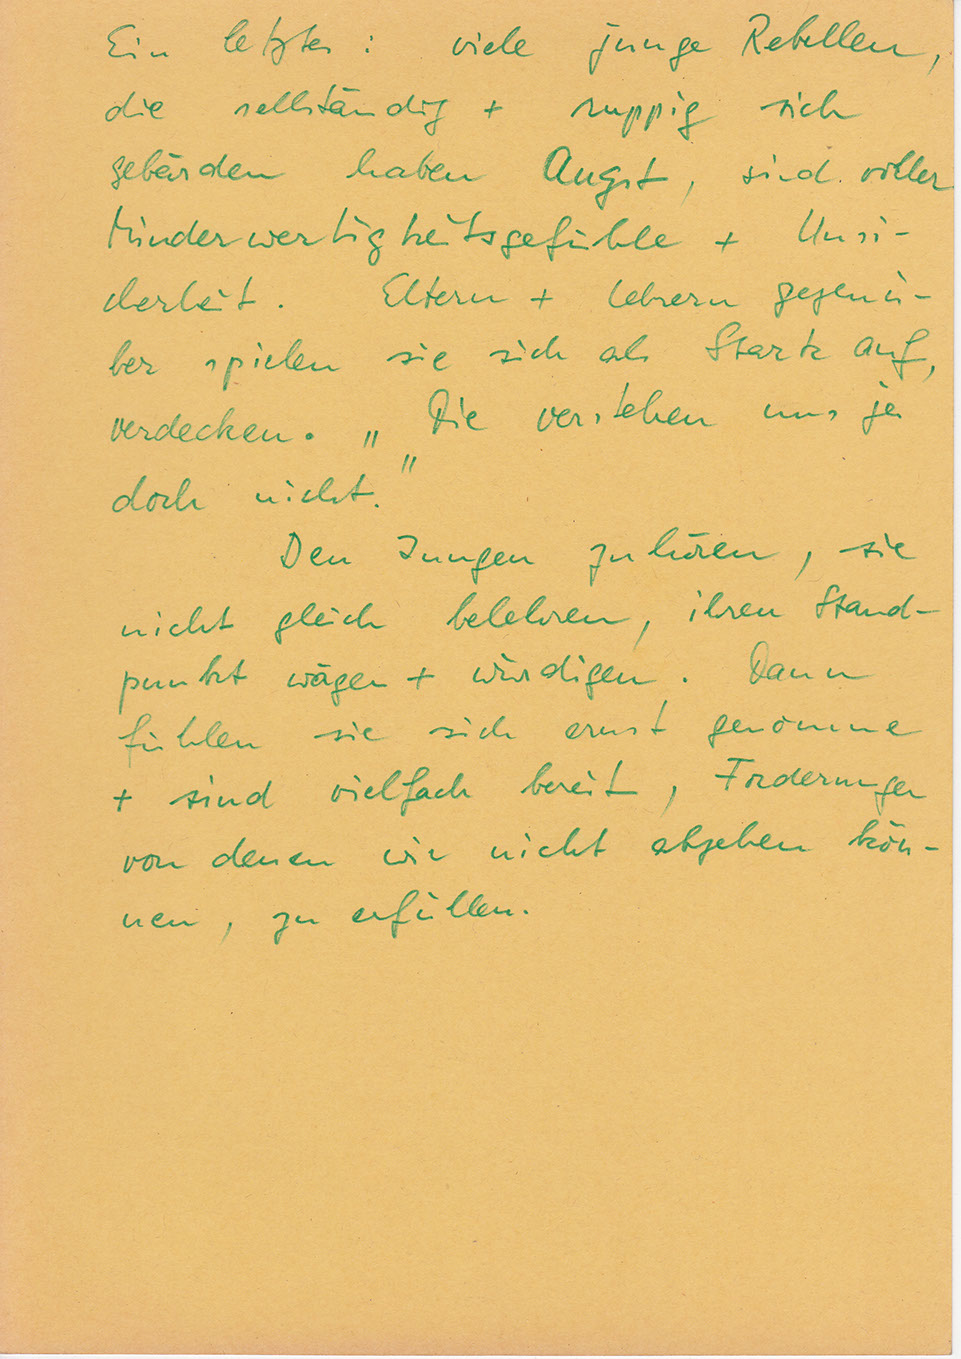 Ein letztes: viele junge Rebellen,
die selbständig + ruppig sich
gebärden haben Angst, sind voller
Minderwertigkeitsgefühle + Unsi-
cherheit. Eltern + Lehrern gegenü-
ber spielen sie sich als Starke auf,
verdecken. „Die verstehen uns ja
doch nicht."
Den Jungen zuhören, sie
nicht gleich belehren, ihren Stand-
punkt wägen + würdigen. Dann
fühlen sie sich ernst genomme
+ sind vielfach bereit, Forderungen
von denen wir nicht abgehen kön-
nen, zu erfüllen.